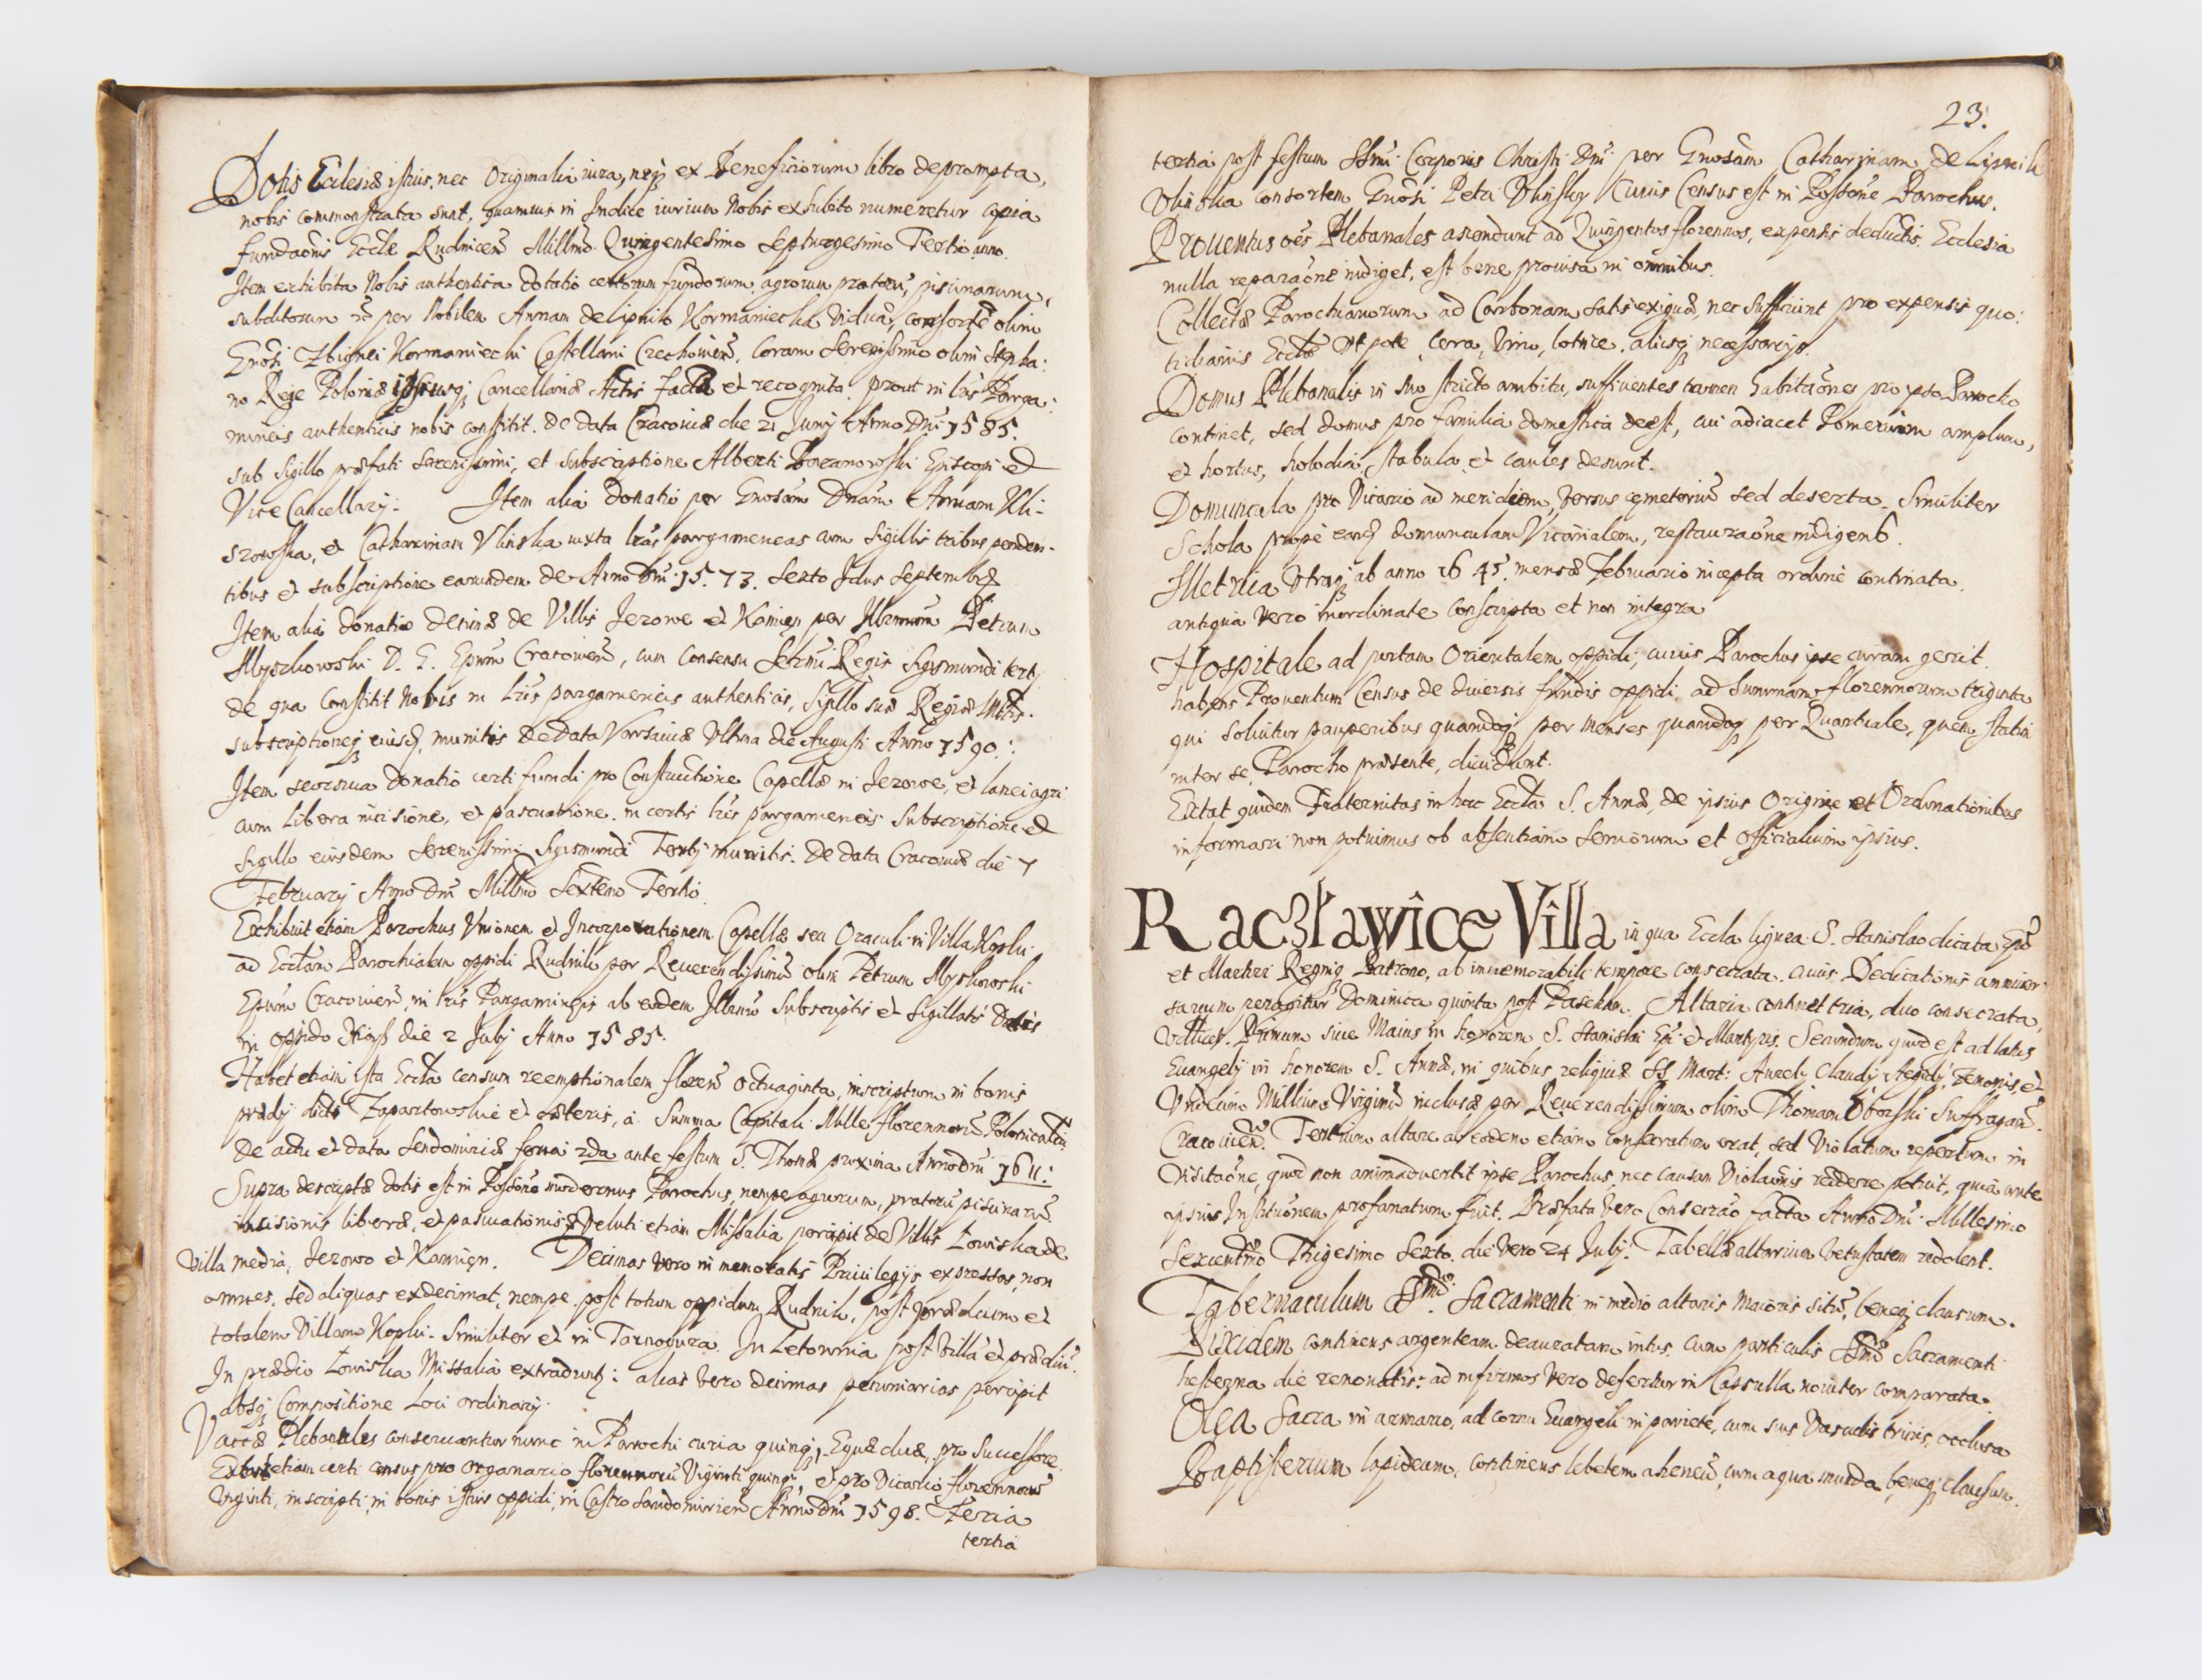 Dotis Ecclesiæ istius, nec Originalia iura, neq; ex Beneficiorum libro deprompta,
nobis commonstrata sunt, quamuis in Indice iurium Nobis exhibito numeretur copia
fundaõnis Ecclæ Rudnicen̄ Millmo Quingentesimo Septuagesimo Tertio anno.
Item exhibita Nobis authentica dotatio certorum fundorum, agrorum pratorũ, piscinarum,
subditorum &c per Nobilem Annam de Lipnik Kormaniecka Viduã, consortẽ olim
Gnosi Zbignei Kormaniecki Castellani Czechouien̄, Coram Serenissimo olim Stepha:
no Rege Poloniæ ipsiusq; Cancellariæ Actis facta et recognita, prout in lris Parga:
mineis authenticis nobis constitit. de data Cracouiæ die 21 Junij Anno Dñi 1585.
sub Sigillo præfati Serenissimi, et subscriptione Alberti Baranowski Episcopi et
Vice Cancellarij. Item alia Donatio per Gnosam Dnam Annam Uli-
szowska, et Catharinam Ulinska iuxta lras pargameneas cum Sigillis tribus penden-
tibus et subscriptione earundem de Anno Dñi 1573. Sexto Idus Septembris
Item alia donatio Decimæ de Villis Jezowe et Kamięn per Illrmum Petrum
Myszkowski D. G. Epum Cracouien̄, cum consensu Sermi Regis Sigismundi tertij
de qua constitit Nobis in lris pargameneis authenticis, Sigillo suæ Regiæ Mttis.
subscriptioneq; eiusd. munitis De Data Varsauiæ Ultima die Augusti Anno 1590.
Item seorsiua donatio certi fundi pro Constructione Capellæ in Jezowe, et lanei agri
cum libera incisione, et pascuatione, in certis lris pargameneis Subscriptione et
Sigillo eiusdem Serenissimi Sigismundi Tertij munitis. De data Cracouiæ die 7
Februarij Anno Dñi Millmo Sexcemo Tertio.
Exhibuit etiam Parochus Unionem et Incorporationem Capellæ seu Oraculi in Villa Kopki
ad Ecclam Parochialem oppidi Rudnik per Reuerendissimũ olim Petrum Myskowski
Epum Cracouien̄, in lris Pargamineis ab eodem Illrmo Subscriptis et Sigillatis Datis
in oppido die 2 Julij Anno 1585.
Habet etiam ista Eccla censum reemptionalem floren̄ octuaginta, inscriptum in bonis
prædij dicti Zapartowskie et cæteris, à Summa Capitali Mille florennorũ Polonicaliũ
De actu et data Sendomiriæ feria 2da ante festum S. Thomæ proxima Anno Dñi 1611.
Supra descriptæ dotis est in Possõne modernus Parochus, nempe agrorum, pratorũ piscinarũ
incisionis liberæ, et pascuationis, Veluti etiam Missalia percipit de Villis Łowiska de
Villa media, Jezowo et Kamięn. Decimas vero in memoratis Priuilegijs expressas, non
omnes, sed aliquas exdecimat, nempe post totum oppidum Rudnik, post prædium et
totalem Villam Kopki. Similiter et in Tarnogura. In Letownia post Villã et prædiũ.
In prædio Łowiska Missalia extradunt; alias vero decimas pecuniarias percipit
absq; Compositione Loci ordinarij.
Vaccæ Plebanales conseruantur nunc in Parochi curia quinq;, Equæ duæ, pro Successore.
Extat etiam certi census pro organario florennorũ Viginti quinq;, et pro Vicario florennorũ
Viginti, inscripti in bonis istius oppidi, in Castro Sandomirien̄ Anno Dñi 1598. Feria
tertia
23.
tertia post festum Ssmi Corporis Christi Dñi per Gnosam Catharinam de Lipnik
Ulinska consortem Gnosi Petri Ulinsky Cuius Census est in Possõne Parochus.
Prouentus oes Plebanales ascendunt ad Quingentos florennos, expensis deductis. Ecclesia
nulla reparaõne indiget, est bene prouisa in omnibus.
Collectæ Parochianorum ad Carbonam satis exiguæ, nec sufficiunt pro expensis quo:
tidianis Ecclæ Ut pote Cera, Vino, lotrice, alijsq; necessarijs.
Domus Plebanalis in suo stricto ambitu, sufficientes tamen habitaõnes pro ipso Parocho
continet, sed domus pro familia domestica deest, cui adiacet Pomerium amplum,
et hortus, holodia, stabula et caules desunt.
Domuncula pro Vicario ad meridiem, versus cæmeteriũ sed deserta. Similiter
Schola prope eand. domunculam Vicarialem, restauraõne indigens.
Metrica Utraq; ab anno 1645. mense Februario incepta ordine continata.
antiqua vero inordinate conscripta et non integra
Hospitale ad portam Orientalem oppidi, cuius Parochus ipse curam gerit.
habens Prouentum Census de diuersis fundis oppidi, ad Summam florennorum triginta
qui soluitur pauperibus quandoq; per menses quandoq; per Quartuale, quem statim
inter se, Parocho præsente, diuidunt.
Extat quidem Fraternitas in hac Eccla S. Annæ, de ipsius Origine et Ordinationibus
informari non potuimus ob absentiam Seniorum et officialium ipsius.
Raczławice Villa in qua Eccla lignea S. Stanislao dicata Epo
et Martyri Regniq; Patrono, ab immemorabili tempore consecrata. cuius Dedicationis anniuer:
sarium peragitur Dominica quinta post Pascham. Altaria continet tria, duo consecrata,
Primum siue Maius in honorem S. Stanislai Epi et Martyris. Secundum quod est ad latus
Euangelij in honorem S. Annæ, in quibus reliquiæ SS Mart: Aurelij Claudij Aegidij, Zenonis, et
Undecim Millium Virginũ inclusæ per Reuerendissimum olim Thomam Oborski Suffragan̄
Cracouien̄. Tertium altare ab eodem etiam consecratum erat, sed Violatum repertum in
Visitaõne, quod non animaduertit ipse Parochus, nec causam Violaõnis reddere potuit, quia ante
ipsius Institutionem profanatum fuit. Præfata vero Consecrão facta Anno Dñi Millesimo
Sexcentmo Trigesimo Sexto. die vero 24 Julij. Tabellæ altarium vetustatem redolent.
Tabernaculum SSmi Sacramenti in medio altaris Maioris sitũ, beneq; clausum.
Pixidem continens argenteam deauratam intus, cum particulis SSmi Sacramenti
hesterna die renouatis: ad infirmos vero defertur in Capsulla nouiter comparata.
Olea Sacra in armario, ad cornu Euangeli in pariete, cum suis Vasculis trinis, occlusa
Baptisterium lapideum, continens lebetem aheneũ, cum aqua munda, beneq; clausum.